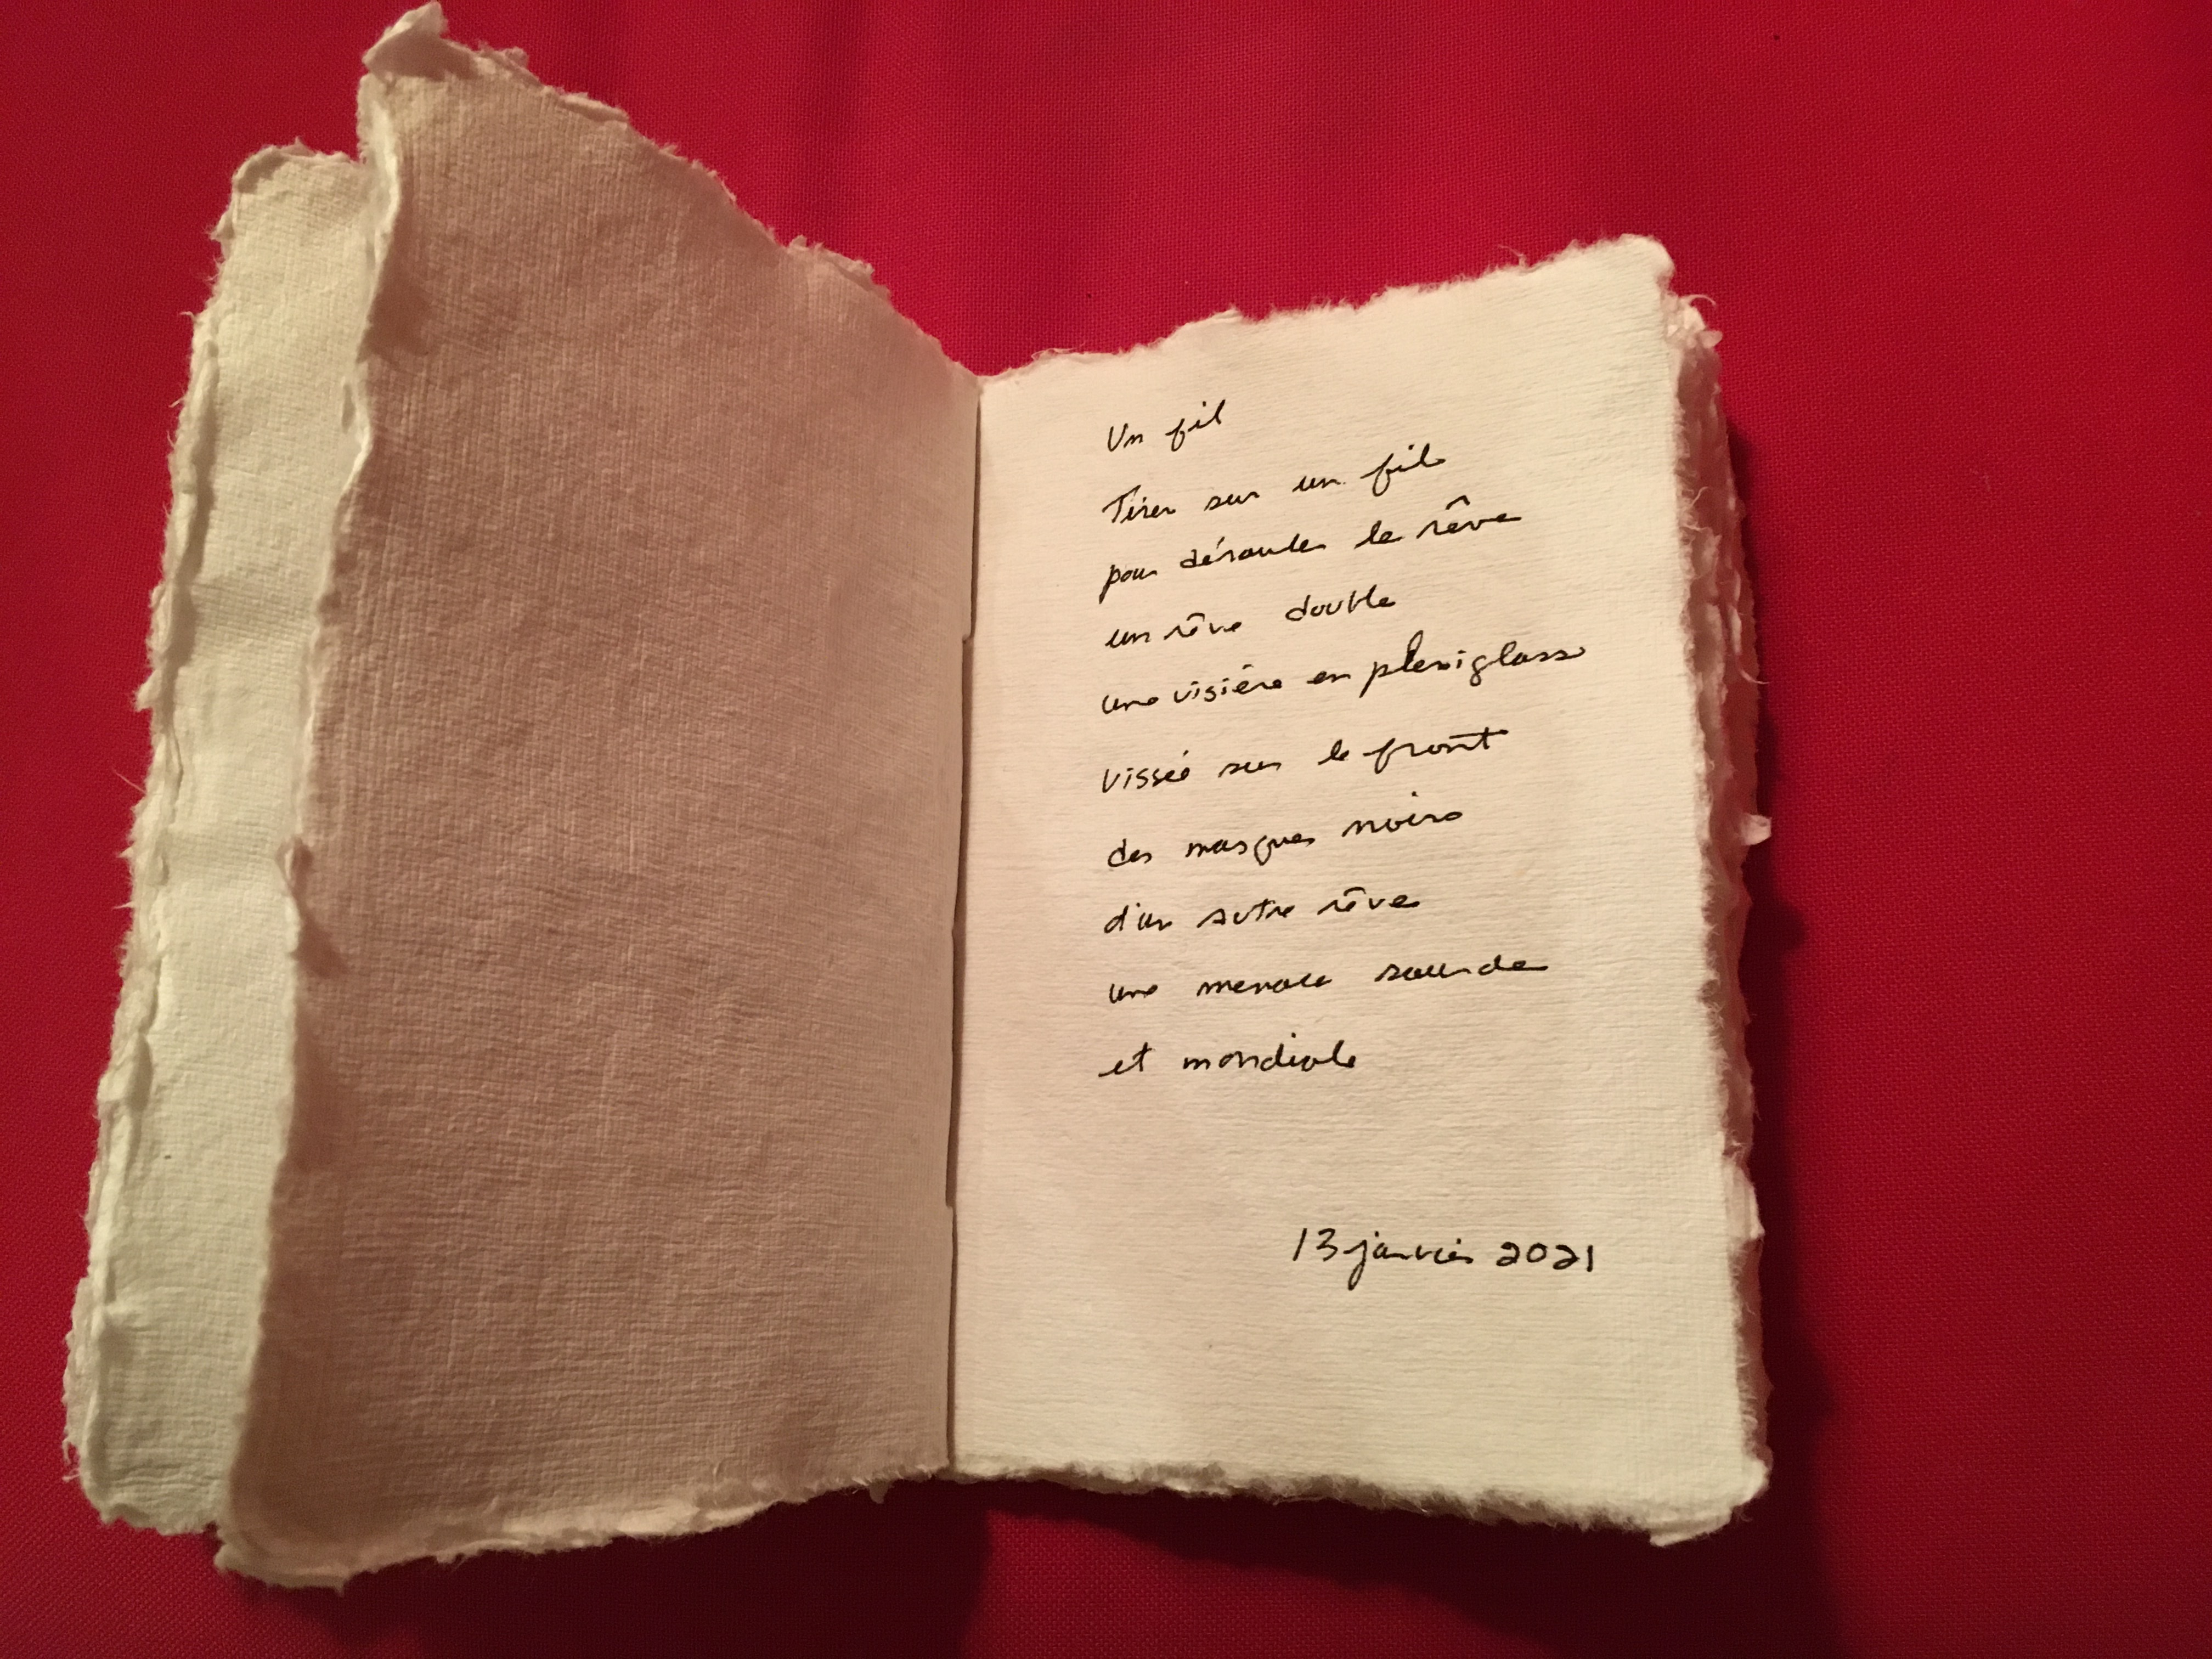 Un fil
Tirer sur un fil
pour dérouler le rêve
un rêve double
une visière en plexiglass
vissée sur le front
des masques noirs
d'un autre rêve
une menace sourde
et mondiale
13 janvier 2021